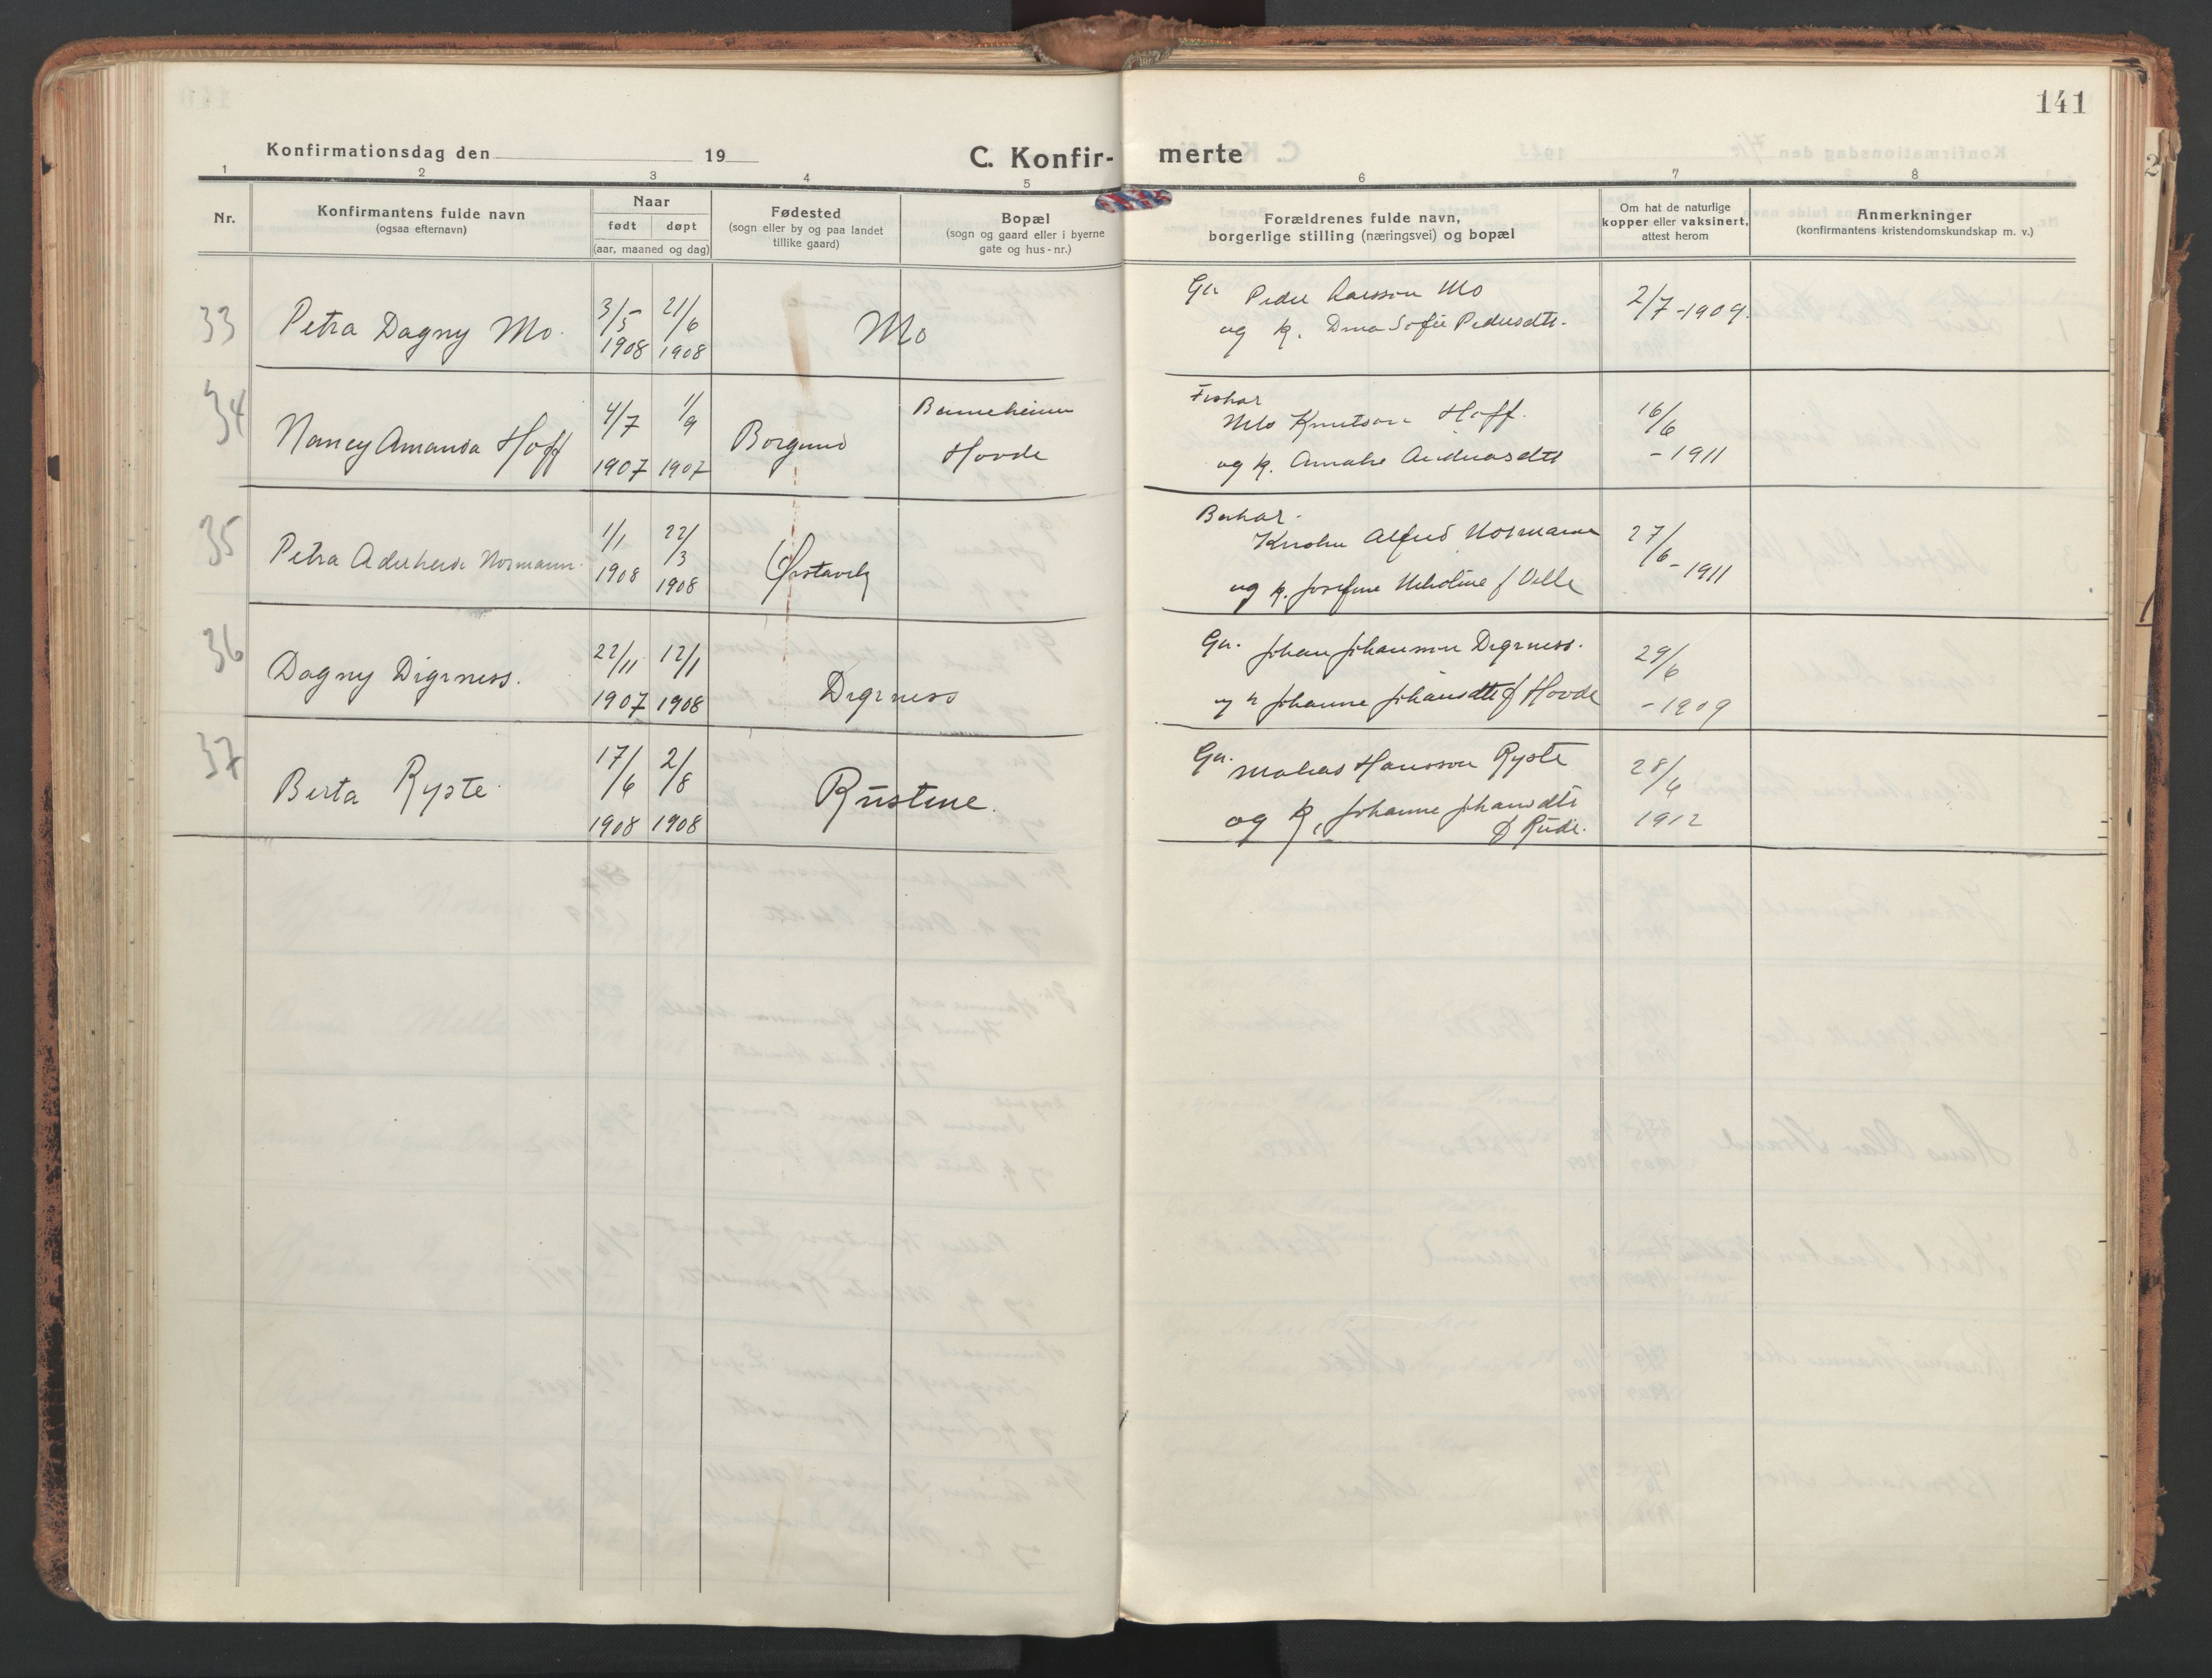 141
Konfirmationsdag den 19
C. Konfir-
merte
1 2 3 4 5 6 7 8
Nr.
Konfirmantens fulde navn
(ogsaa efternavn)
Naar
født døpt
(aar, maaned og dag)
Fødested
(sogn eller by og paa landet
tillike gaard)
Bopæl
(sogn og gaard eller i byerne
gate og hus-nr.)
Forældrenes fulde navn,
borgerlige stilling (næringsvei) og bopæl
Om hat de naturlige
kopper eller vaksinert,
attest herom
Anmerkninger
(konfirmantens kristendomskundskap m. v.)
33
Petra Dagny Mo.
3/5 1908
21/6 1908
Mo
Ga Peder Larsson Mo
og k. Dina Sofie Pedersdtr.
2/7-1909.
34
Nancy Amanda Hoff
4/7 1907
1/9 1907
Borgund
Hovde
Fiskar
Nils Knutson Hoff.
og k. Amalie Andreasdtr
16/6
-1911
35
Petra Aderheid Normann.
1/1 1908
22/3 1908
Ørstavik
Alfred Normann
og k. Josefine f Velle
27/6-1911
36
Dagny Digrness.
22/11 1907
12/1 1908
Digrness
Ga. Johan Johansson Digrness.
og k Johanne Johansdtr f Hovde
29/6
-1909
37
Berta Ryste.
17/6 1908
2/8 1908
Rustene.
Ga. Matias Hansson Ryste
og k. Johanne Johansdtr
f Rude.
28/6
1912